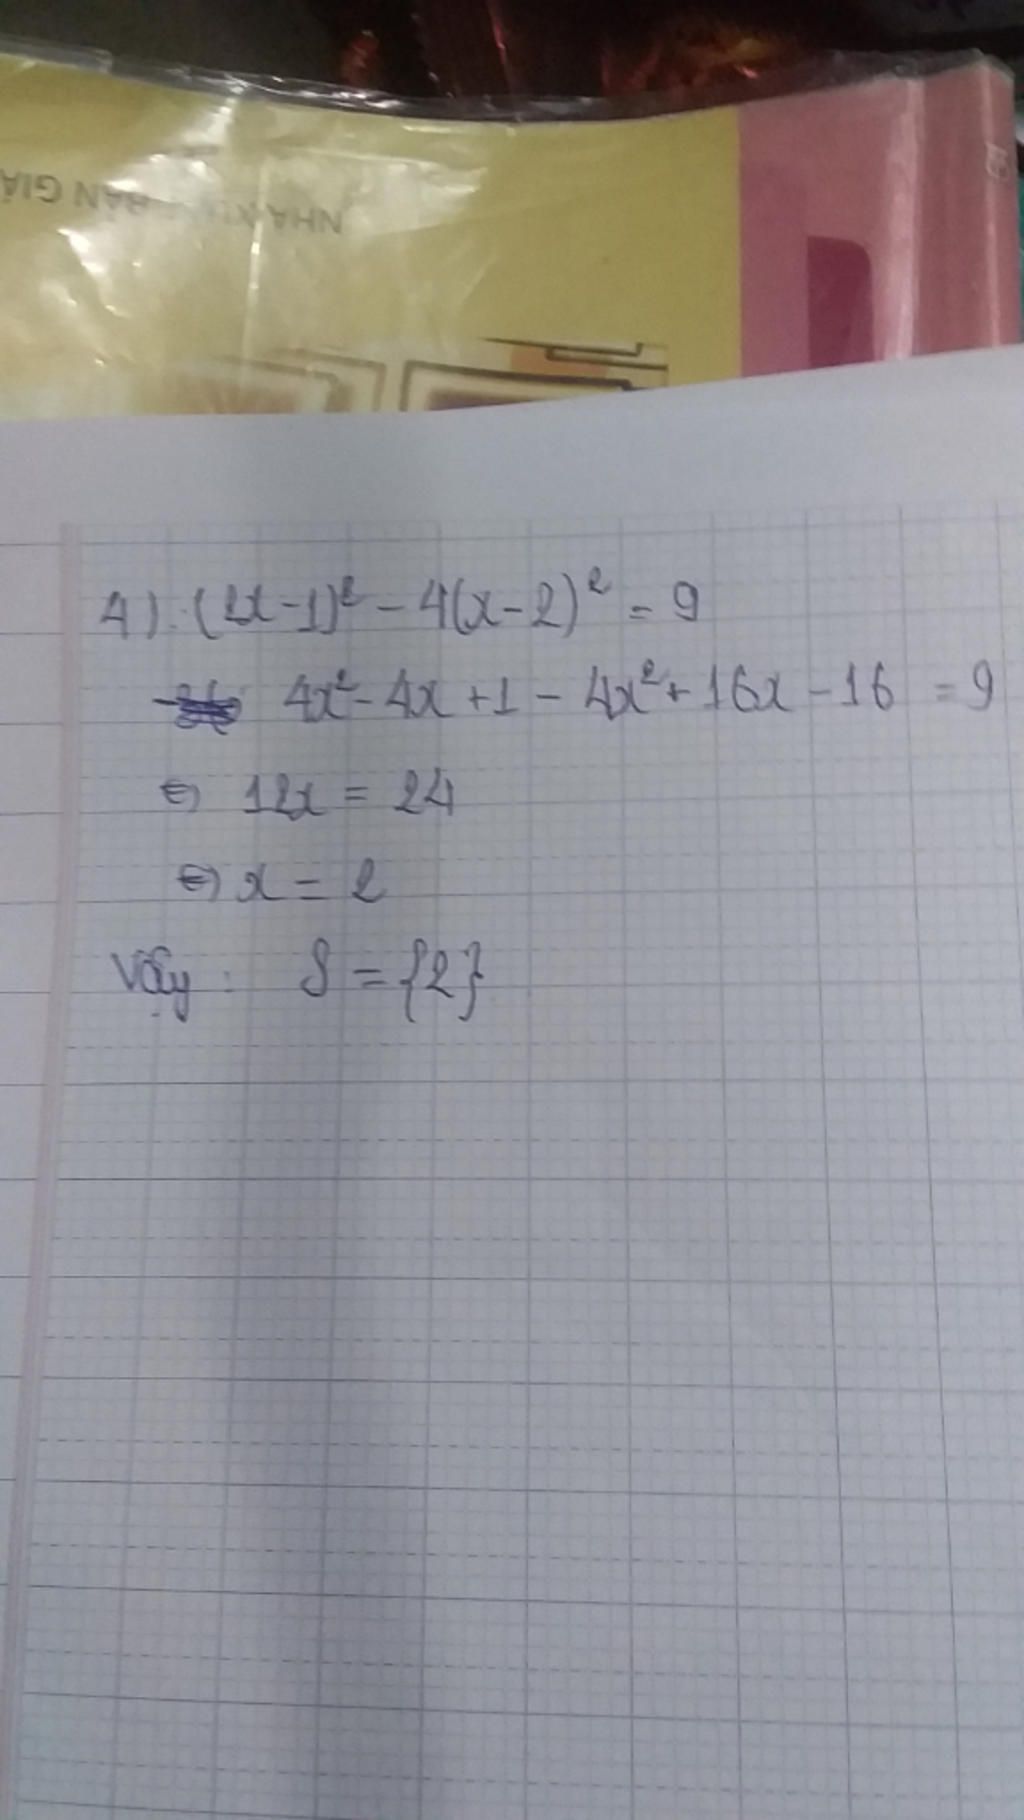 NHÀ XUẤT BẢN GIÁ
4) (2x-1)² - 4(x-2)² = 9
4x² - 4x + 1 - 4x² + 16x - 16 = 9
⇔ 12x = 24
⇔ x = 2
Vậy : S = {2}